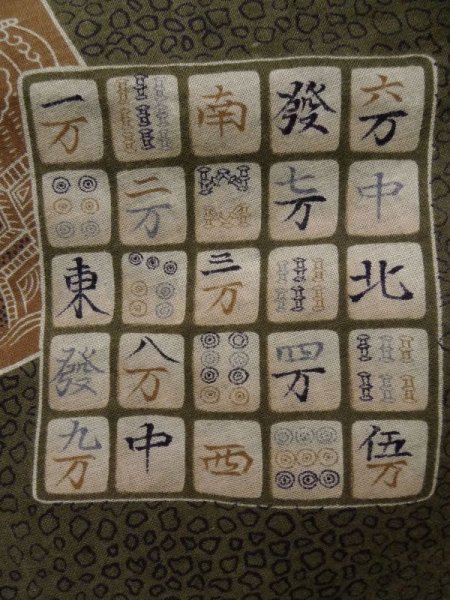 一万 南 發 六万
二万 七万 中
東 三万 北
發 八万 四万
九万 中 西 伍万